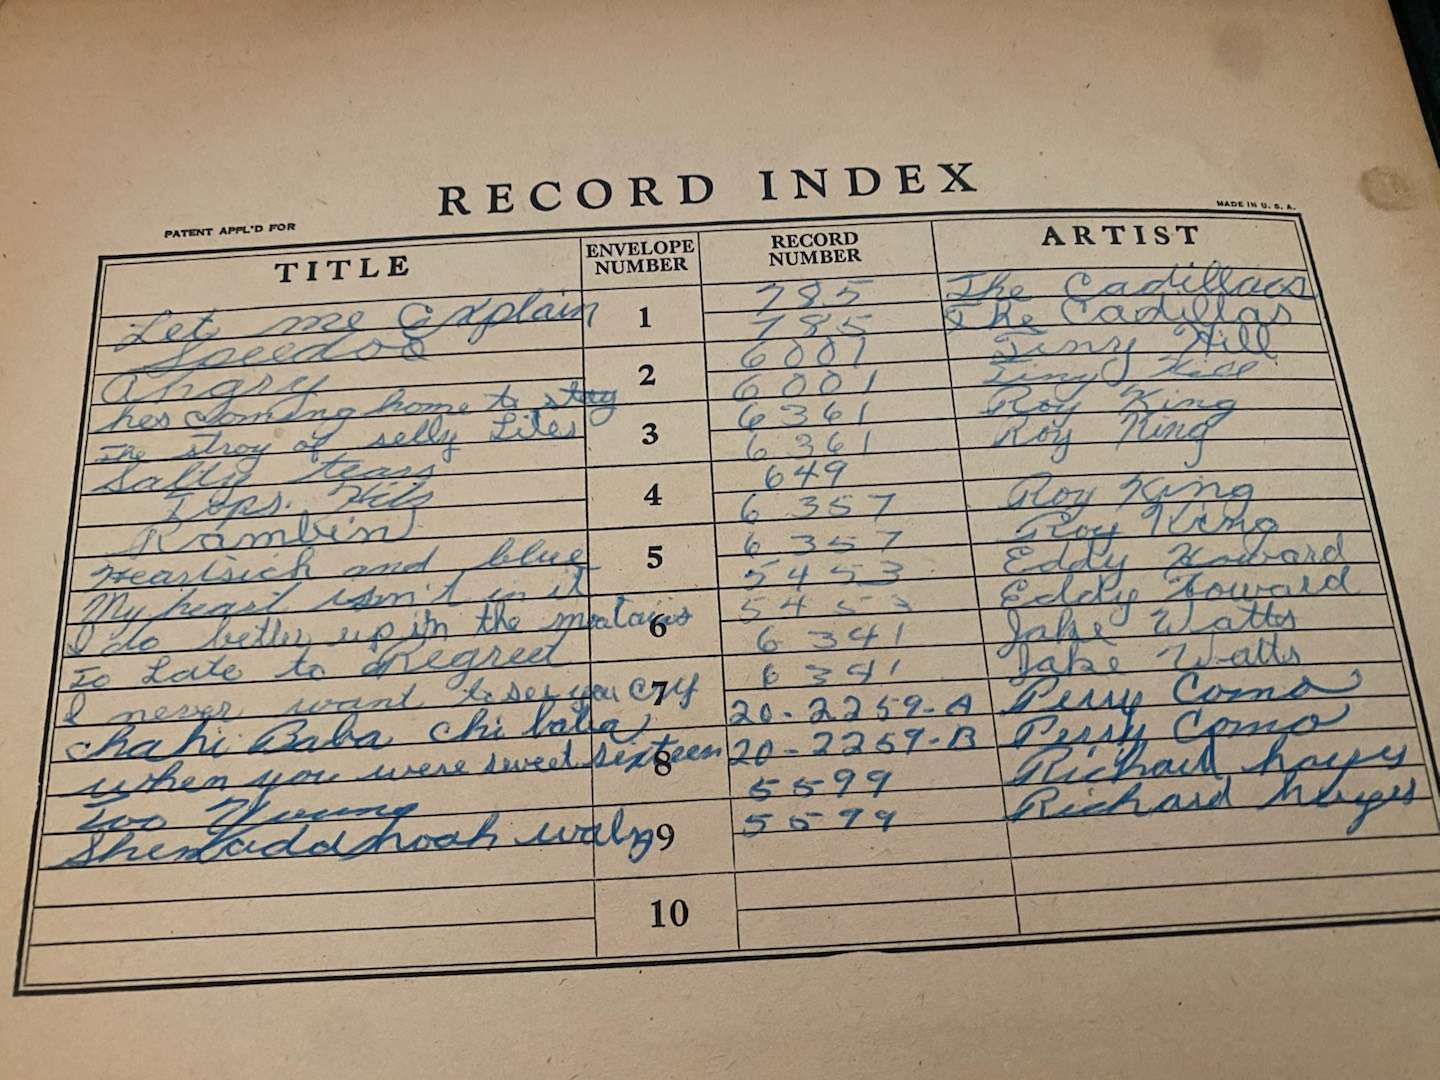 RECORD INDEX
PATENT APPL'D FOR
MADE IN U. S. A.
TITLE ENVELOPE NUMBER RECORD NUMBER ARTIST
Let me Explain 1 785 The Cadillacs
Speedoo 785 The Cadillas
Angry 2 6001 Tiny Hill
hes Coming home to stay 6001 Tiny Hill
The stroy of selly Liles 3 6361 Roy King
Salty tears 6361 Roy King
Tops. Hits 4 649
Ramblin 6357 Roy King
Heartsick and blue 5 6357 Roy King
My heart isn't in it 5453 Eddy Howard
I do better up in the montains 6 5453 Eddy Howard
To Late to Regreet 6341 Jake Watts
I never want to see you cry 7 6341 Jake Watts
Chahi Baba Chi baba 20-2259-A Perry Como
when you were sweet sixteen 8 20-2259-B Perry Como
Too Young 5599 Richard hayes
Shenaddhoah waltz 9 5599 Richard hayes
10